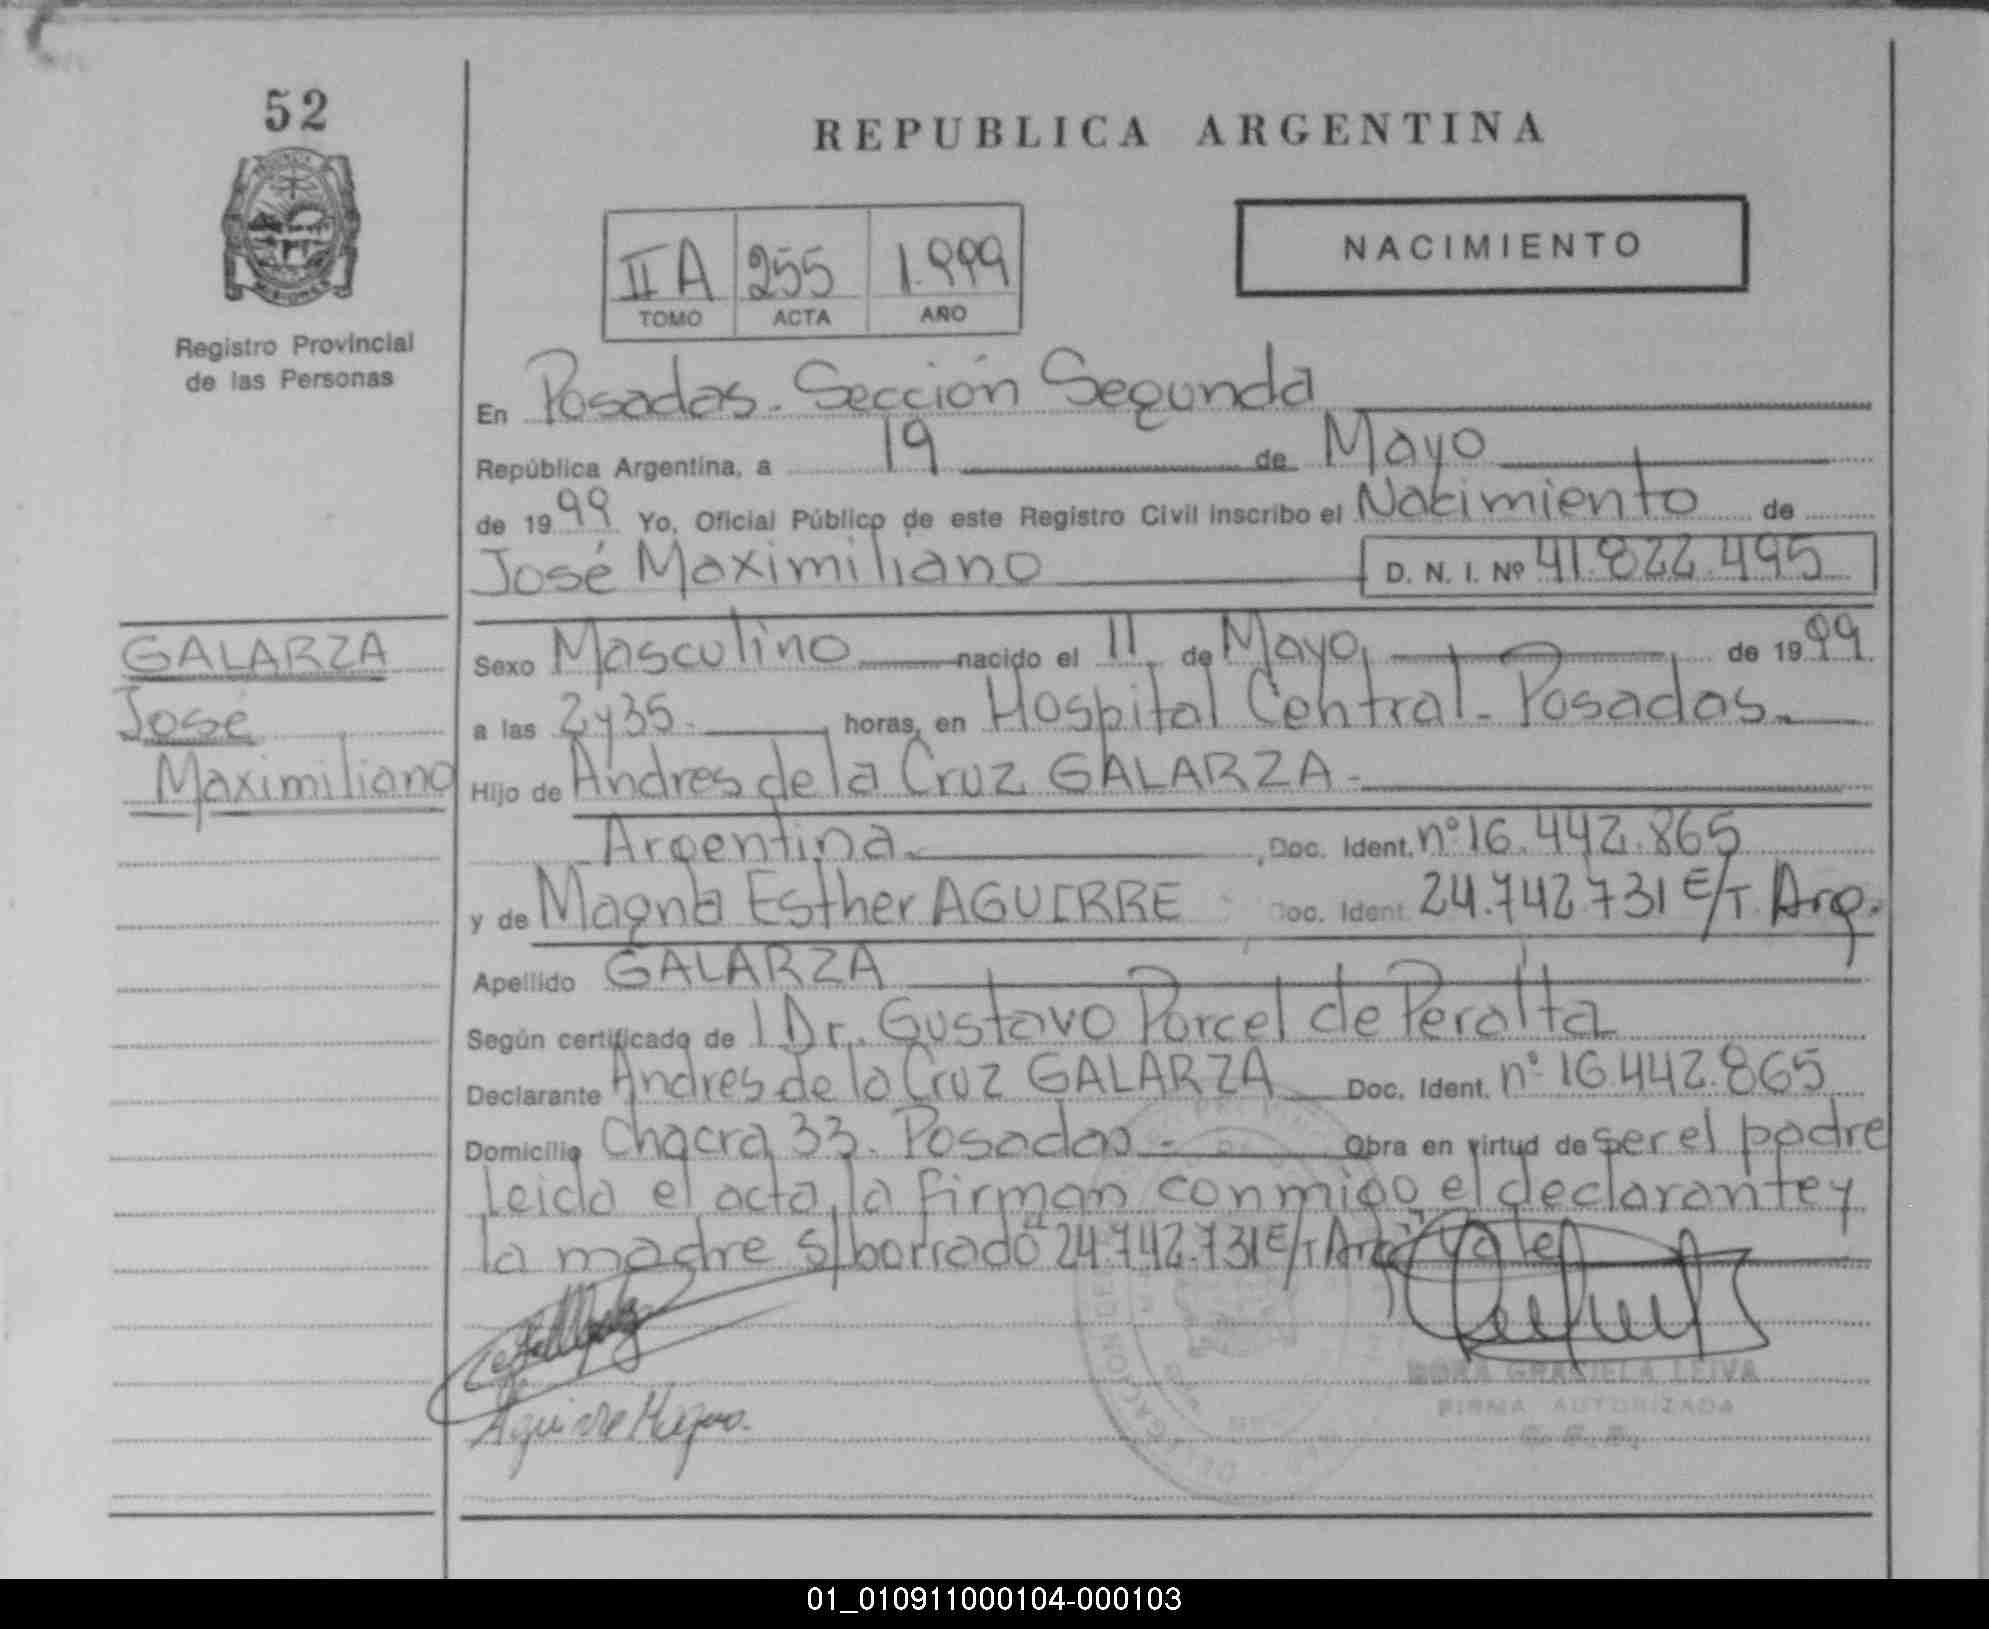 52
REPUBLICA ARGENTINA
NACIMIENTO
II A 255 1.999
TOMO ACTA AÑO
Registro Provincial
de las Personas
En Posadas. Sección Segunda
República Argentina, a 19 de Mayo
de 1999 Yo, Oficial Público de este Registro Civil inscribo el Nacimiento de
José Maximiliano D. N. I. Nº 41.822.495
GALARZA
José
Maximiliano
Sexo Masculino nacido el 11 de Mayo, de 1999
a las 2 y 35. horas, en Hospital Central - Posadas.
Hijo de Andres de la Cruz GALARZA.
Argentina. Doc. Ident. nº 16.442.865
y de Magna Esther AGUIRRE Doc. Ident. 24.742.731 E/T. Arg.
Apellido GALARZA
Según certificado de l Dr. Gustavo Porcel de Peralta
Declarante Andres de la Cruz GALARZA Doc. Ident. nº 16.442.865
Domicilio Chacra 33. Posadas. Obra en virtud de ser el padre
Leida el acta, la firman conmigo el declarante y
la madre s/borrado "24.742.731 E/T Arg" Vale
Aguirre Magna.
DORA GRACIELA LEIVA
FIRMA AUTORIZADA
01_010911000104-000103